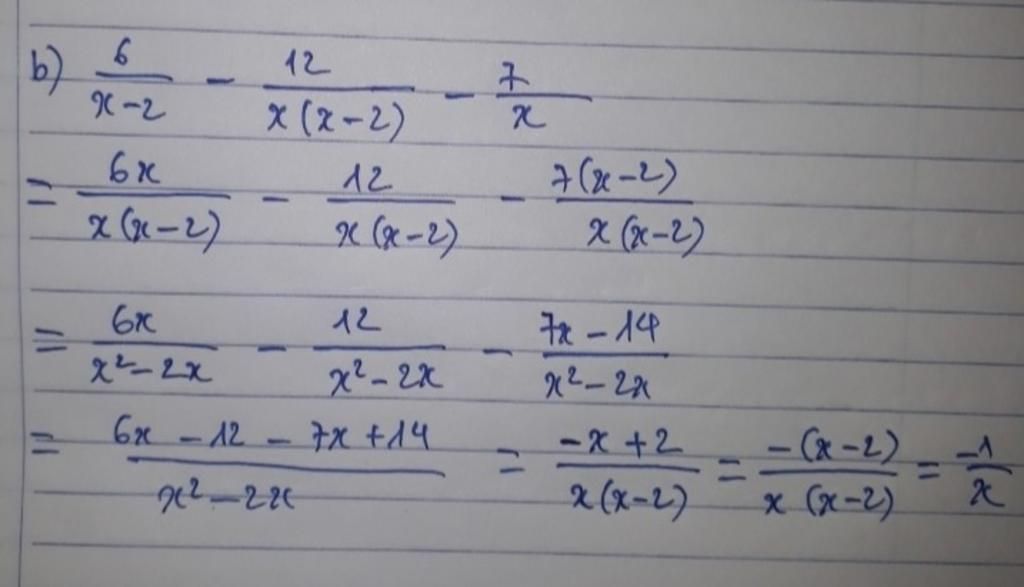 b) 6/(x-2) - 12/(x(x-2)) - 7/x
= 6x/(x(x-2)) - 12/(x(x-2)) - 7(x-2)/(x(x-2))
= 6x/(x²-2x) - 12/(x²-2x) - (7x-14)/(x²-2x)
= (6x-12-7x+14)/(x²-2x) = (-x+2)/(x(x-2)) = -(x-2)/(x(x-2)) = -1/x